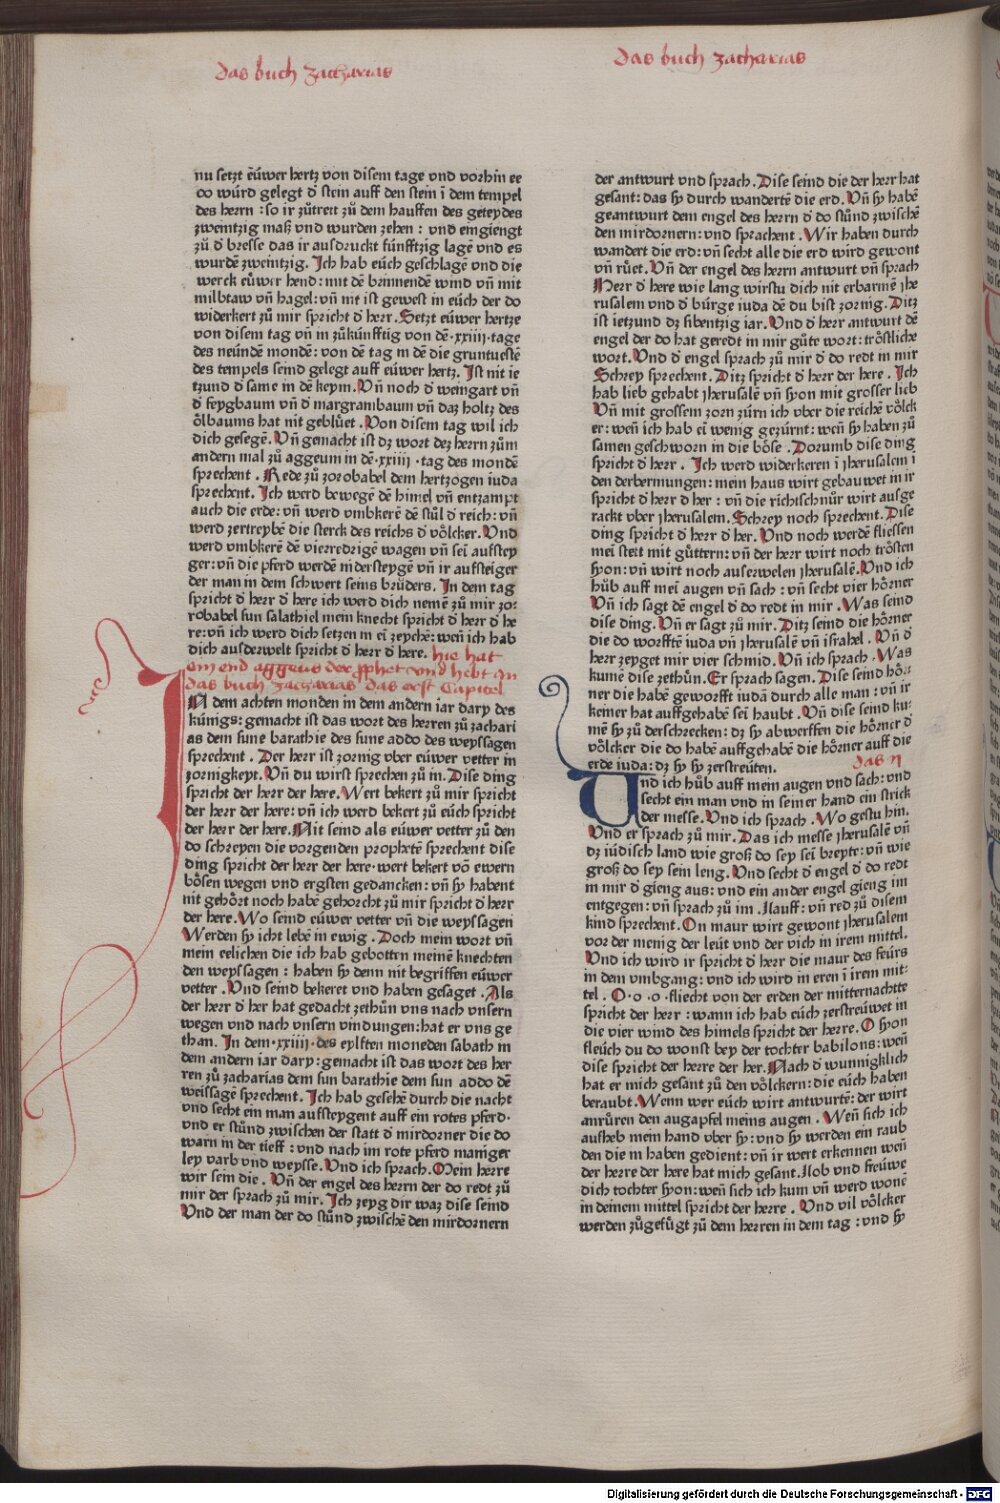 das buch zacharias
das buch zacharias
nu setzt eüwer hertz von disem tage vnd vorhin ee
do würd gelegt d̄ stein auff den stein ī dem tempel
des herrn : so ir zůtreit zů dem hauffen des geteydes
zweintzig maß vnd wurden zehen : vnd eingiengt
zů d̄ presse das ir ausdruckt fünfftzig lagē vnd es
wurdē zweintzig. Ich hab eüch geschlagē vnd die
werck eüwer hend : mit dē brinnendē wind vn̄ mit
milbtaw vn̄ hagel: vn̄ nit ist gewest in eüch der do
widerkert zů mir spricht d̄ herr. Setzt eüwer hertze
von disem tag vn̄ in zůkünfftig von dē·xxiiij·tage
des neündē mondē: von dē tag in dē die gruntuestē
des tempels seind gelegt auff eüwer hertz. Ist nit ie
tzund d̄ same in dē keym. Vn̄ noch d̄ weingart vn̄
d̄ feygbaum vn̄ d̄ margrambaum vn̄ daz holtz des
ölbaums hat nit geblůet. Von disem tag wil ich
dich gesegē. Vn̄ gemacht ist dz wort dez herrn zům
andern mal zů aggeum in dē·xxiiij·tag des mondē
sprechent. Rede zů zorobabel dem hertzogen iuda
sprechent. Ich werd bewegē dē himel vn̄ entzampt
auch die erde: vn̄ werd vmbkerē dē stůl d̄ reich: vn̄
werd zertreybē die sterck des reichs d̄ völcker. Vnd
werd vmbkerē dē vierredrigē wagen vn̄ sei͂ aufstey
ger: vn̄ die pferd werdē nidersteygē vn̄ ir aufsteiger
der man in dem schwert seins brüders. In dem tag
spricht d̄ herr d̄ here ich werd dich nemē zů mir zo⸗
robabel sun salathiel mein knecht spricht d̄ herr d̄ he
re: vn̄ ich werd dich setzen in ei͂ zeychē: wen̄ ich hab
dich ausderwelt spricht d̄ herr d̄ here. hie hat
ein end aggeus der pphet vnd hebt an
das buch zacharias das erst Capitel
IN dem achten monden in dem andern iar dary des
künigs: gemacht ist das wort des herren zů zachari
as dem sune barathie des sune addo des weyssagen
sprechent. Der herr ist zornig vber eüwer vetter in
zornigkeyt. Vn̄ du wirst sprechen zů in. Dise ding
spricht der herr der here. Wert bekert zů mir spricht
der herr der here: vn̄ ich werd bekert zů eüch spricht
der herr der here. Nit seind als eüwer vetter zů den
do schreyen die vorgenden prophetē sprechent dise
ding spricht der herr der here· wert bekert vō ewern
bösen wegen vnd ergsten gedancken: vn̄ sy habent
nit gehört noch habē gehorcht zů mir spricht d̄ herr
der here. Wo seind eüwer vetter vn̄ die weyssagen
Werden sy icht lebē in ewig. Doch mein wort vn̄
mein eelichen die ich hab gebotten meinē knechten
den weyssagen : haben sy denn nit begriffen eüwer
vetter. Vnd seind bekeret vnd haben gesaget. Als
der herr d̄ her hat gedacht zethůn vns nach vnsern
wegen vnd nach vnsern vindungen: hat er vns ge
than. In dem·xxiiij·des eylften moneden sabath in
dem andern iar dary: gemacht ist das wort des her
ren zů zacharias dem sun barathie dem sun addo dē
weissagē sprechent. Ich hab gesehē durch die nacht
vnd secht ein man aufsteygent auff ein rotes pferd·
vnd er stůnd zwischen der statt d̄ mirdorner die do
warn in der tieff : vnd nach im rote pferd maniger
ley varb vnd weysse. Vnd ich sprach. Mein herre
wir sein die. Vn̄ der engel des herrn der do redt zů
mir der sprach zů mir. Ich zeyg dir waz dise seind
Vnd der man der do stůnd zwischē den mirdornern
der antwurt vnd sprach. Dise seind die der herr hat
gesant: das sy durch wandertē die erd. Vn̄ sy habē
geantwurt dem engel des herrn d̄ do stůnd zwischē
den mirdornern: vnd sprachent. Wir haben durch
wandert die erd: vn̄ secht alle die erd wird gewont
vn̄ růet. Vn̄ der engel des herrn antwurt vn̄ sprach
Herr d̄ here wie lang wirstu dich nit erbarmē jhe
rusalem vnd d̄ bürge iuda dē du bist zornig. Ditz
ist ietzund dz sibentzig iar. Vnd d̄ herr antwurt dē
engel der do hat geredt in mir gůte wort: tröstliche
wort. Vnd d̄ engel sprach zů mir d̄ do redt in mir
Schrey sprechent. Ditz spricht d̄ herr der here. Ich
hab lieb gehabt jherusalē vn̄ syon mit grosser lieb
Vn̄ mit grossem zorn zürn ich vber die reichē völck
er: wen̄ ich hab ei͂ wenig gezürnt: wen̄ sy haben zů
samen geschworn in die böse. Dorumb dise ding
spricht d̄ herr. Ich werd widerkeren ī jherusalem ī
den derbermungen: mein haus wirt gebauwet in ir
spricht d̄ herr d̄ her : vn̄ die richtschnůr wirt ausge
rackt vber jherusalem. Schrey noch sprechent. Dise
ding spricht d̄ herr d̄ her. Vnd noch werdē fliessen
mei͂ stett mit gůttern: vn̄ der herr wirt noch trösten
syon: vn̄ wirt noch auserwelen jherusalē. Vnd ich
hůb auff mei͂ augen vn̄ sach : vn̄ secht vier hörner
Vn̄ ich sagt dē engel d̄ do redt in mir. Was seind
dise ding. Vn̄ er sagt zů mir. Ditz seind die hörner
die do worfftē iuda vn̄ jherusalē vn̄ israhel. Vn̄ d̄
herr zeyget mir vier schmid. Vn̄ ich sprach. Was
kumē dise zethůn. Er sprach sagen. Dise seind hö⸗
ner die habē geworfft iudā durch alle man : vn̄ ir
keiner hat auffgehabē sei͂ haubt. Vn̄ dise seind ku⸗
mē sy zů derschrecken: dz sy abwerffen die hörner d̄
völcker die do habē auffgehabē die hörner auff die
erde iuda: dz sy sy zerstreüten. das ij
Vnd ich hůb auff mein augen vnd sach: vnd
secht ein man vnd in seiner hand ein strick
der messe. Vnd ich sprach. Wo gestu hin.
Vnd er sprach zů mir. Das ich messe jherusalē vn̄
dz iüdisch land wie groß do sey sei͂ breytr: vn̄ wie
groß do sey sein leng. Vnd secht d̄ engel d̄ do redt
in mir d̄ gieng aus: vnd ein ander engel gieng im
entgegen: vn̄ sprach zů im. Lauff: vn̄ red zů disem
kind sprechent. On maur wirt gewont jherusalem
vor der menig der leüt vnd der vich in irem mittel.
Vnd ich wird ir spricht d̄ herr die maur des feürs
in dem vmbgang: vnd ich wird in eren ī irem mit⸗
tel. O·o·o·fliecht von der erden der mitternachtte
spricht der herr : wann ich hab eüch zerstreüwet in
die vier wind des himels spricht der herre. O syon
fleüch du do wonst bey der tochter babilons: wen̄
dise spricht der herre der her. Nach d̄ wunniglich
hat er mich gesant zů den völckern: die eüch haben
beraubt. Wenn wer eüch wirt antwurtē: der wirt
anrüren den augapfel meins augen. Wen̄ sich ich
aufheb mein hand vber sy: vnd sy werden ein raub
den die in haben gedient: vn̄ ir wert erkennen wen̄
der herre der here hat mich gesant. Lob vnd freüwe
dich tochter syon: wen̄ sich ich kum vn̄ werd wonē
in deinem mittel spricht der herre. Vnd vil völcker
werden zůgefügt zů dem herren in dem tag : vnd sy
Digitalisierung gefördert durch die Deutsche Forschungsgemeinschaft - DFG